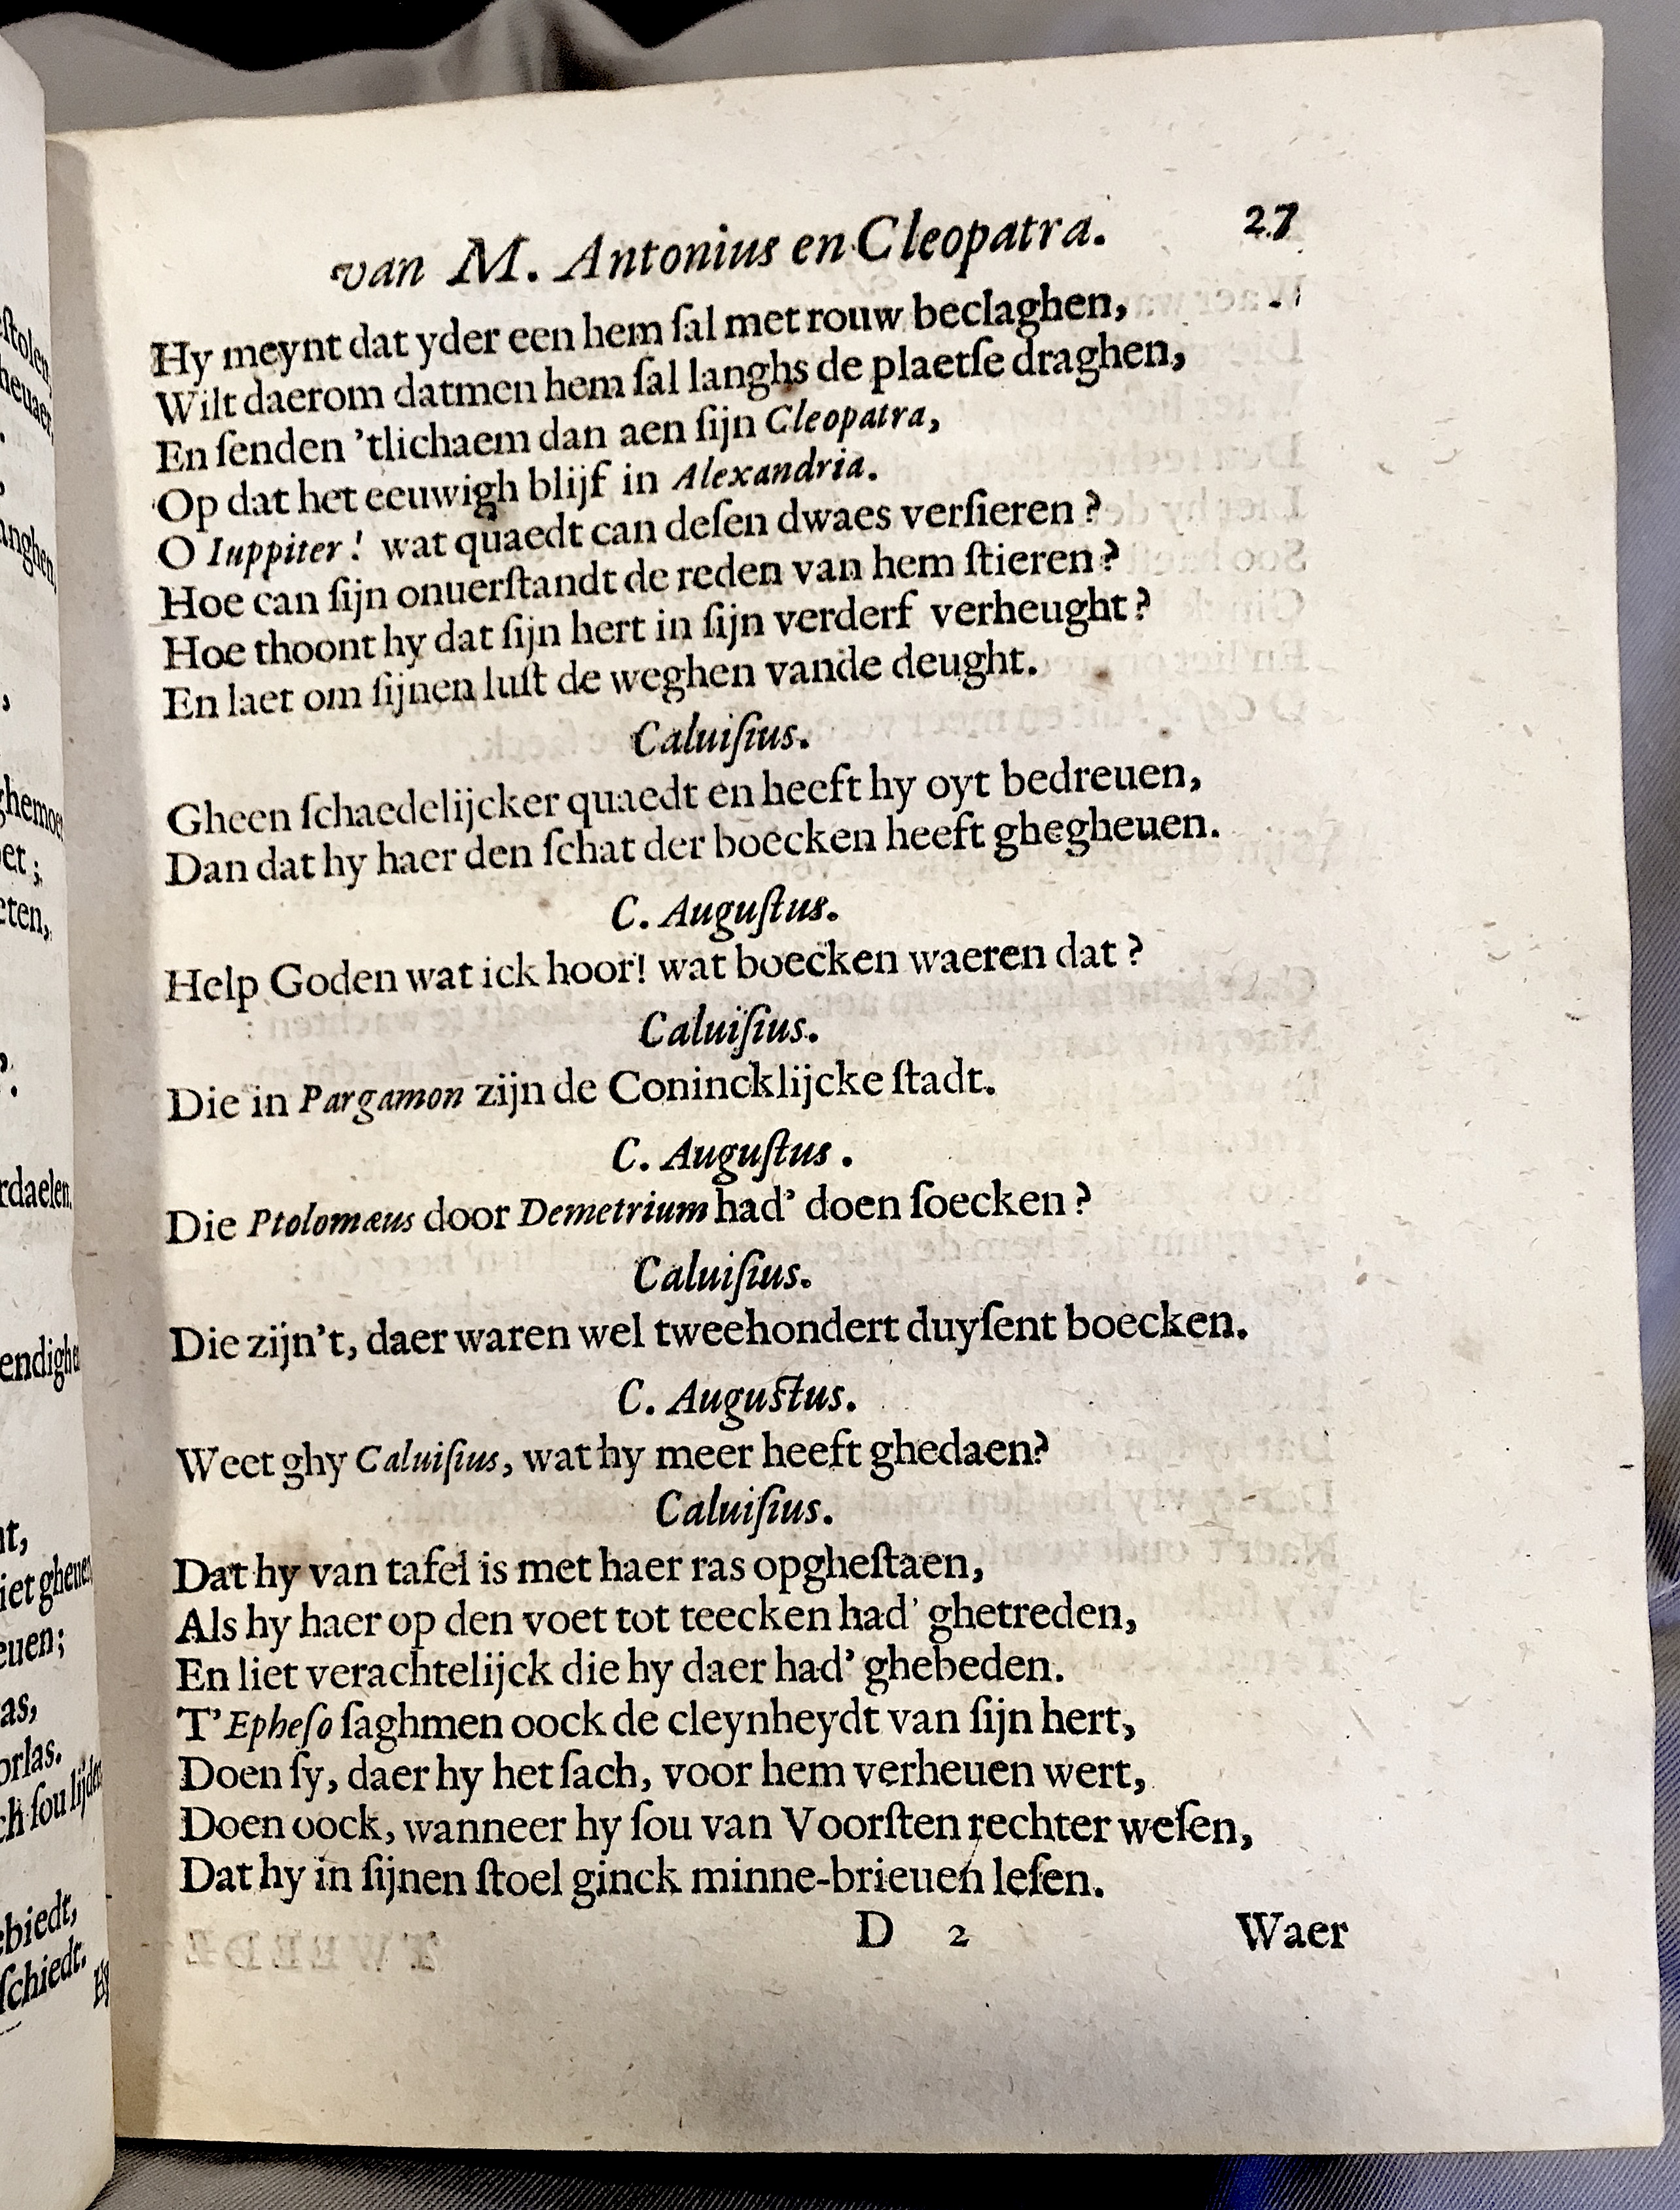 van M. Antonius en Cleopatra. 27
Hy meynt dat yder een hem ſal met rouw beclaghen,
Wilt daerom datmen hem ſal langhs de plaetſe draghen,
En ſenden 'tlichaem dan aen ſijn Cleopatra,
Op dat het eeuwigh blijf in Alexandria.
O Iuppiter! wat quaedt can deſen dwaes verſieren?
Hoe can ſijn onuerſtandt de reden van hem ſtieren?
Hoe thoont hy dat ſijn hert in ſijn verderf verheught?
En laet om ſijnen luſt de weghen vande deught.
Caluiſius.
Gheen ſchaedelijcker quaedt en heeft hy oyt bedreuen,
Dan dat hy haer den ſchat der boecken heeft ghegheuen.
C. Auguſtus.
Help Goden wat ick hoor! wat boecken waeren dat?
Caluiſius.
Die in Pargamon zijn de Conincklijcke ſtadt.
C. Auguſtus.
Die Ptolomæus door Demetrium had' doen ſoecken?
Caluiſius.
Die zijn't, daer waren wel tweehondert duyſent boecken.
C. Auguſtus.
Weet ghy Caluiſius, wat hy meer heeft ghedaen?
Caluiſius.
Dat hy van tafel is met haer ras opgheſtaen,
Als hy haer op den voet tot teecken had' ghetreden,
En liet verachtelijck die hy daer had' ghebeden.
T'Epheſo ſaghmen oock de cleynheydt van ſijn hert,
Doen ſy, daer hy het ſach, voor hem verheuen wert,
Doen oock, wanneer hy ſou van Voorſten rechter weſen,
Dat hy in ſijnen ſtoel ginck minne-brieuen leſen.
D 2 Waer